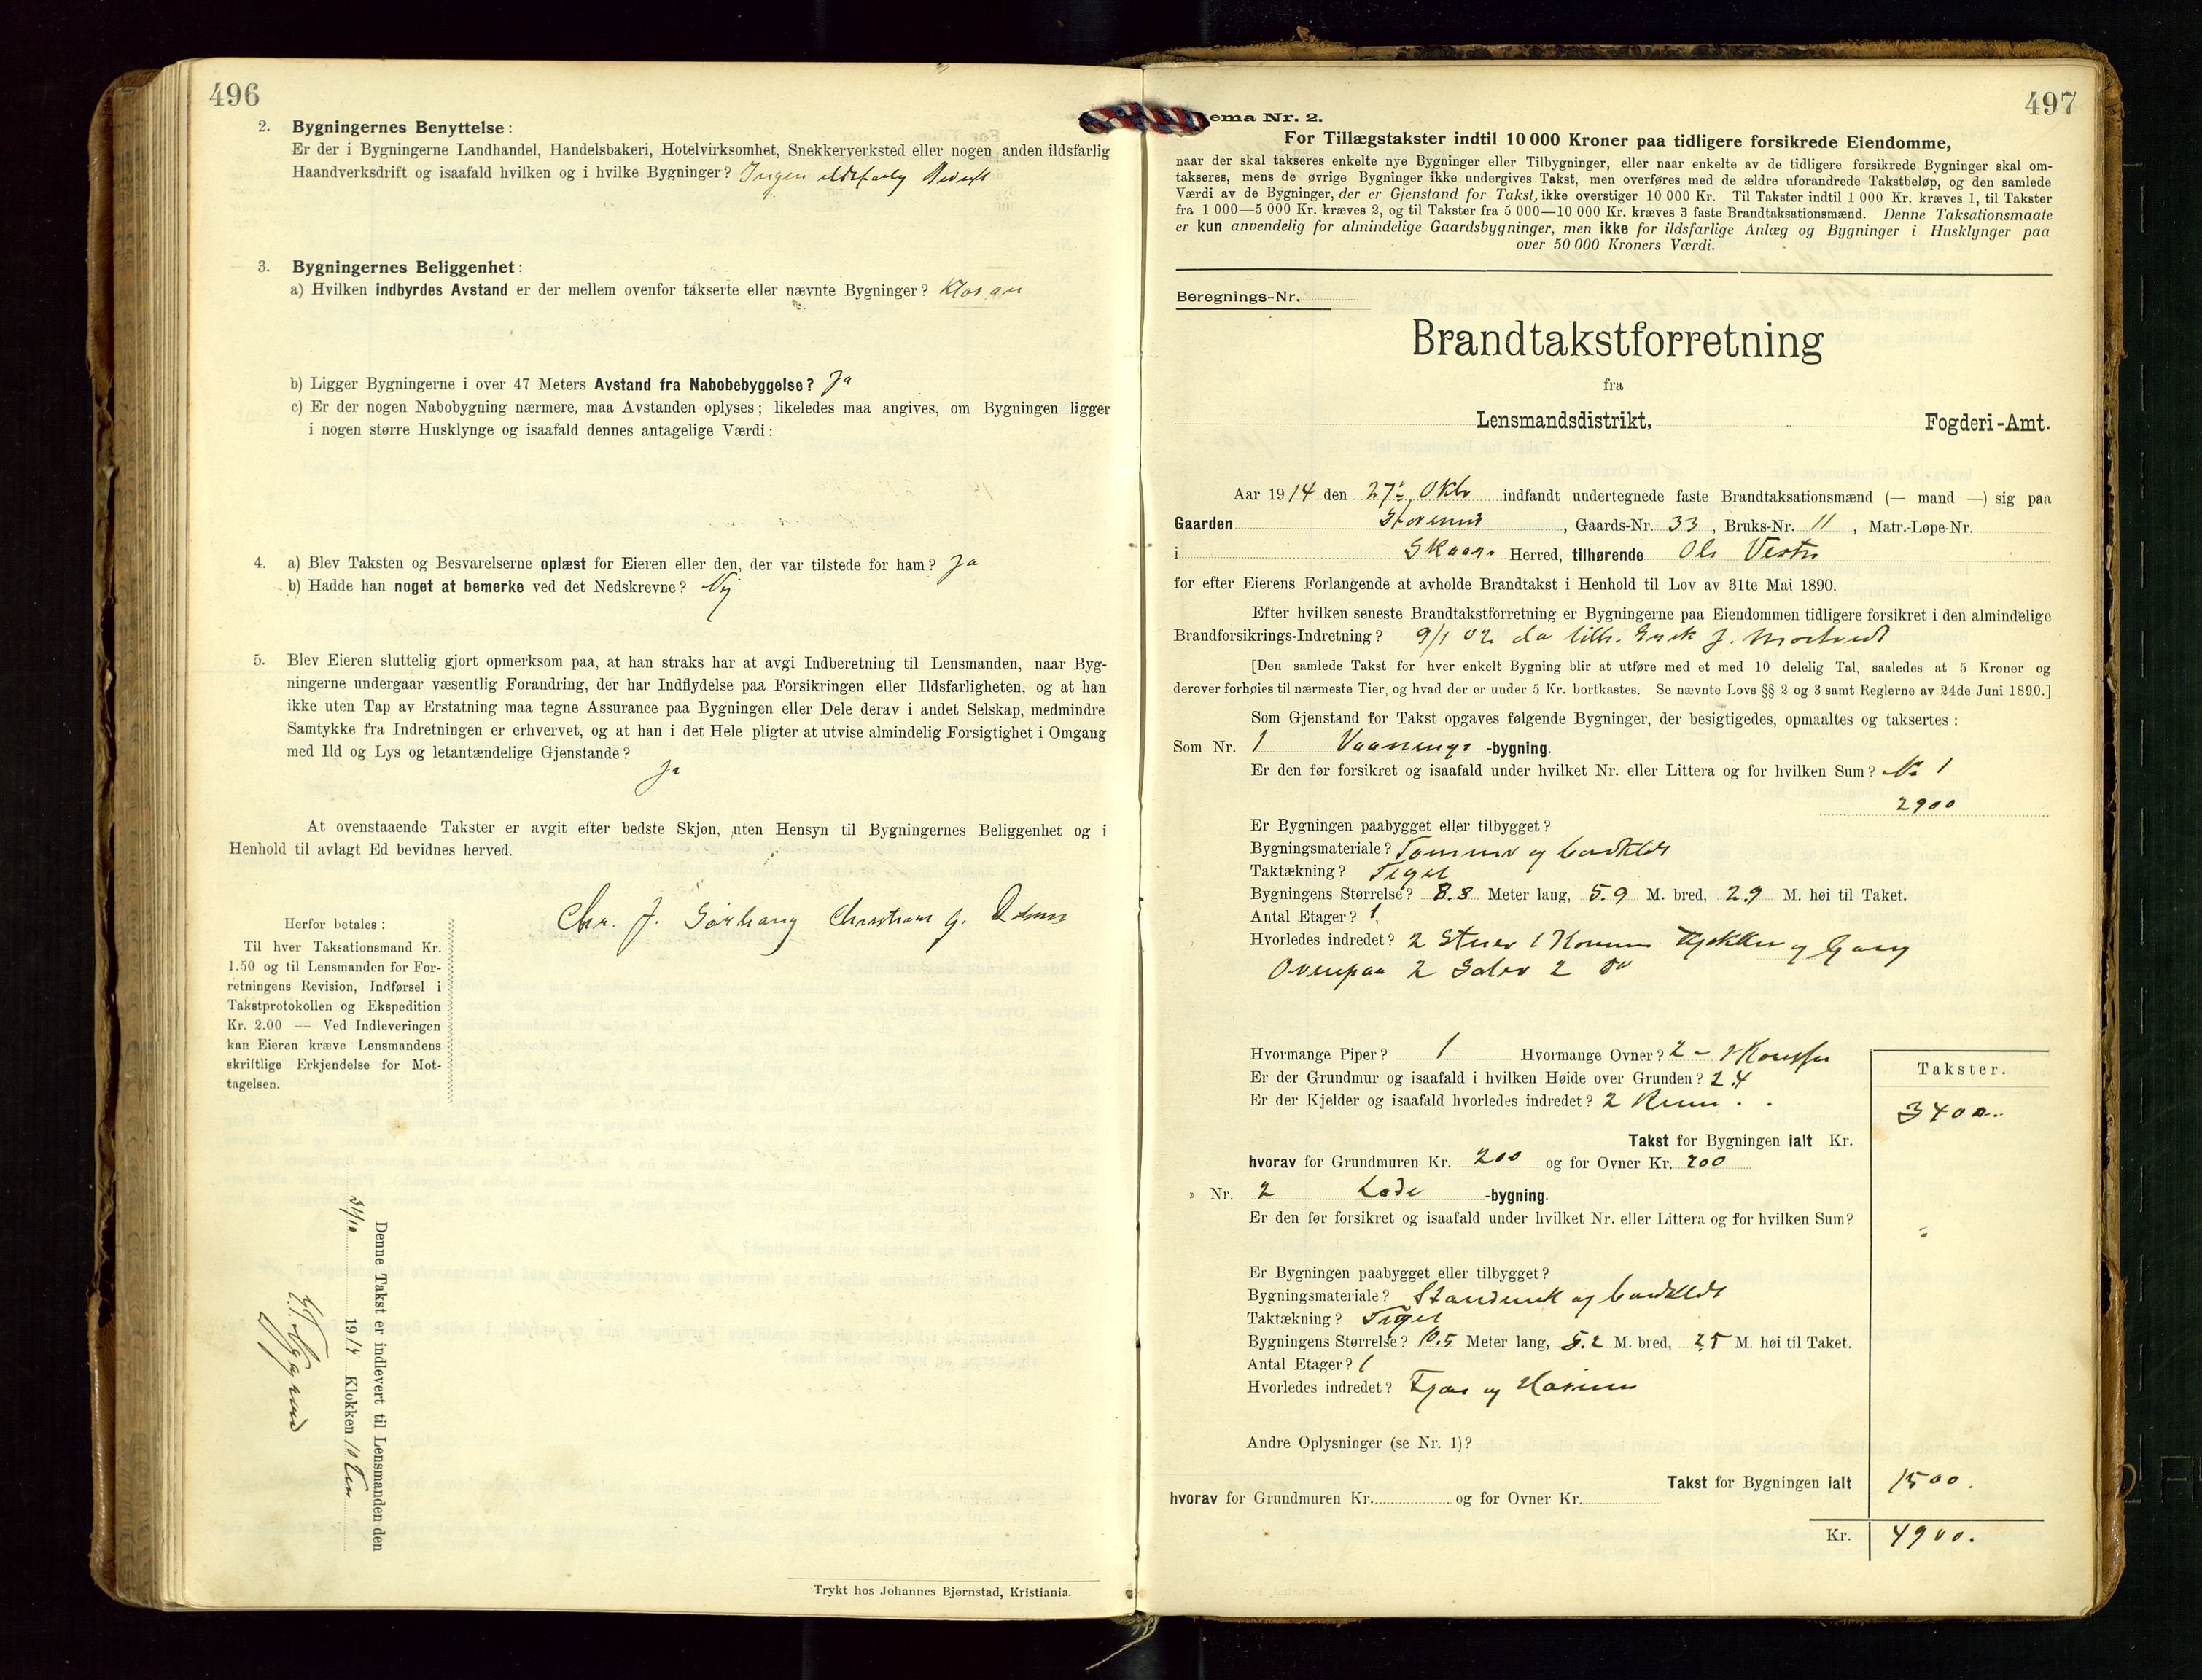 496
2. Bygningernes Benyttelse:
Er der i Bygningerne Landhandel, Handelsbakeri, Hotelvirksomhet, Snekkerverksted eller nogen anden ildsfarlig
Haandverksdrift og isaafald hvilken og i hvilke Bygninger? Ingen ildsfarlig Bedrift
3. Bygningernes Beliggenhet:
a) Hvilken indbyrdes Avstand er der mellem ovenfor takserte eller nævnte Bygninger?
b) Ligger Bygningerne i over 47 Meters Avstand fra Nabobebyggelse? Ja
c) Er der nogen Nabobygning nærmere, maa Avstanden oplyses; likeledes maa angives, om Bygningen ligger
i nogen større Husklynge og isaafald dennes antagelige Værdi:
4. a) Blev Taksten og Besvarelserne oplæst for Eieren eller den, der var tilstede for ham? Ja
b) Hadde han noget at bemerke ved det Nedskrevne? Nej
5. Blev Eieren sluttelig gjort opmerksom paa, at han straks har at avgi Indberetning til Lensmanden, naar Byg-
ningerne undergaar væsentlig Forandring, der har Indflydelse paa Forsikringen eller Ildsfarligheten, og at han
ikke uten Tap av Erstatning maa tegne Assurance paa Bygningen eller Dele derav i andet Selskap, medmindre
Samtykke fra Indretningen er erhvervet, og at han i det Hele pligter at utvise almindelig Forsigtighet i Omgang
med Ild og Lys og letantændelige Gjenstande?
Ja
At ovenstaaende Takster er avgit efter bedste Skjøn, uten Hensyn til Bygningernes Beliggenhet og i
Henhold til avlagt Ed bevidnes herved.
Chr. J. Sørhaug Christian G.
Herfor betales:
Til hver Taksationsmand Kr.
1.50 og til Lensmanden for For-
retningens Revision, Indførsel i
Takstprotokollen og Ekspedition
Kr. 2.00 — Ved Indleveringen
kan Eieren kræve Lensmandens
skriftlige Erkjendelse for Mot-
tagelsen.
Denne Takst er indlevert til Lensmanden den
31/10 1914 Klokken 10
Trykt hos Johannes Bjørnstad, Kristiania.
497
ema Nr. 2.
For Tillægstakster indtil 10 000 Kroner paa tidligere forsikrede Eiendomme,
naar der skal takseres enkelte nye Bygninger eller Tilbygninger, eller naar enkelte av de tidligere forsikrede Bygninger skal om-
takseres, mens de øvrige Bygninger ikke undergives Takst, men overføres med de ældre uforandrede Takstbeløp, og den samlede
Værdi av de Bygninger, der er Gjenstand for Takst, ikke overstiger 10 000 Kr. Til Takster indtil 1 000 Kr. kræves 1, til Takster
fra 1 000—5 000 Kr. kræves 2, og til Takster fra 5 000—10 000 Kr. kræves 3 faste Brandtaksationsmænd. Denne Taksationsmaate
er kun anvendelig for almindelige Gaardsbygninger, men ikke for ildsfarlige Anlæg og Bygninger i Husklynger paa
over 50 000 Kroners Værdi.
Beregnings-Nr.
Brandtakstforretning
fra
Lensmandsdistrikt, Fogderi-Amt.
Aar 1914 den 27de Oktbr indfandt undertegnede faste Brandtaksationsmænd (— mand —) sig paa
Gaarden , Gaards-Nr. 33, Bruks-Nr. 11, Matr.-Løpe-Nr.
i Skaare Herred, tilhørende Ole Vestre
for efter Eierens Forlangende at avholde Brandtakst i Henhold til Lov av 31te Mai 1890.
Efter hvilken seneste Brandtakstforretning er Bygningerne paa Eiendommen tidligere forsikret i den almindelige
Brandforsikrings-Indretning? 9/1 02 da tilh. J.
[Den samlede Takst for hver enkelt Bygning blir at utføre med et med 10 delelig Tal, saaledes at 5 Kroner og
derover forhøies til nærmeste Tier, og hvad der er under 5 Kr. bortkastes. Se nævnte Lovs §§ 2 og 3 samt Reglerne av 24de Juni 1890.]
Som Gjenstand for Takst opgaves følgende Bygninger, der besigtigedes, opmaaltes og taksertes:
Som Nr. 1 Vaanings -bygning.
Er den før forsikret og isaafald under hvilket Nr. eller Littera og for hvilken Sum? No 1
2900
Er Bygningen paabygget eller tilbygget?
Bygningsmateriale? Tømmer og bordkldt
Taktækning? Tegel
Bygningens Størrelse? 8.3 Meter lang, 5.9 M. bred, 2.9 M. høi til Taket.
Antal Etager? 1
Hvorledes indredet? 2 Stuer 1 Kammer Kjøkken og Gang
Ovenpaa 2 Saler 2 Do
Hvormange Piper? 1 Hvormange Ovner? 2 - 1 Komfur
Er der Grundmur og isaafald i hvilken Høide over Grunden? 2.4
Er der Kjelder og isaafald hvorledes indredet? 2 Rum
Takster.
3400.
Takst for Bygningen ialt Kr.
hvorav for Grundmuren Kr. 200 og for Ovner Kr. 200
» Nr. 2 Lade -bygning.
Er den før forsikret og isaafald under hvilket Nr. eller Littera og for hvilken Sum?
Er Bygningen paabygget eller tilbygget?
Bygningsmateriale? Standverk og bordkldt
Taktækning? Tegel
Bygningens Størrelse? 10.5 Meter lang, 5.2 M. bred, 2.5 M. høi til Taket.
Antal Etager? 1
Hvorledes indredet? Fjøs og Hørum
Andre Oplysninger (se Nr. 1)?
Takst for Bygningen ialt 1500.
hvorav for Grundmuren Kr. og for Ovner Kr.
Kr. 4900.